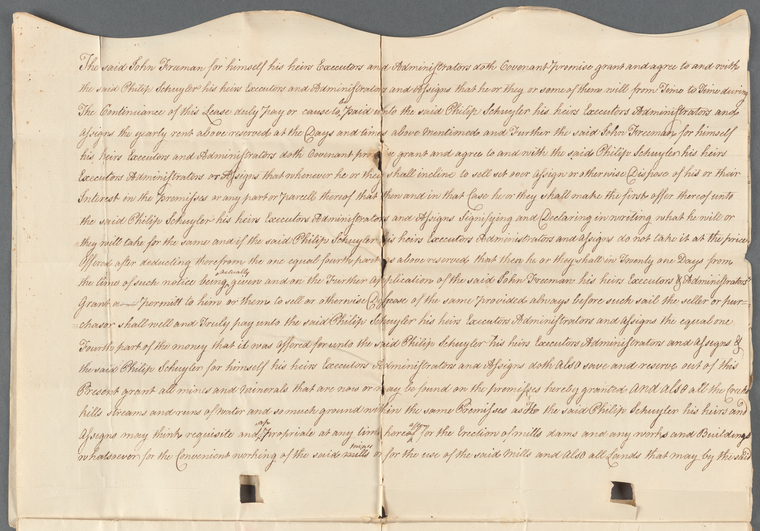 The said John Freeman for himself his heirs Executors and Administrators doth Covenant Promise grant and agree to and with
the said Philip Schuyler his heirs Executors and Administrators and Assigns that he or they or some of them will from Time to Time during
The Continuance of this Lease duly Pay or cause to be Paid unto the said Philip Schuyler his heirs Executors Administrators and
assigns the yearly rent above reserved at the Days and times above mentioned and Further the said John Freeman for himself
his heirs Executors and Administrators doth Covenant pro e grant and agree to and with the said Philip Schuyler his heirs
Executors Administrators or Assigns that whenever he or they shall incline to sell set over assign or otherwise Dispose of his or their
Interest in the Premisses or any part or Parcell thereof that then and in that Case he or they shall make the first offer thereof unto
the said Philip Schuyler his heirs Executors Administrators and Assigns Signifying and Declaring in writing what he will or
they will take for the same and if the said Philip Schuyler his heirs Executors Administrators and Assigns do not take it at the price
Offered after deducting therefrom the one equal fourth part as above reserved that then he or they shall in Twenty one Days from
the time of such notice being actually given and on the Further Application of the said John Freeman his heirs Executors & Administrators
Grant a Permitt to him or them to sell or otherwise Dispose of the same Provided always before such sail the seller or pur=
chaser shall well and Truly pay unto the said Philip Schuyler his heirs Executors Administrators and Assigns the equal one
Fourth part of the money that it was Offered for unto the said Philip Schuyler his heirs Executors Administrators and Assigns &
the said Philip Schuyler for himself his heirs Executors Administrators and Assigns doth Also save and reserve out of this
Present grant all mines and Minerals that are now or may be found on the premisses hereby granted And Also all the Creeks
kills streams and runs of Water and so much ground within the same Premisses as He the said Philip Schuyler his heirs and
Assigns may think requisite and appropriate at any time hereafter for the Erection of mills dams and any works and Buildings
whatsoever for the Convenient working of the said mines or for the use of the said Mills and Also all Lands that may by the said